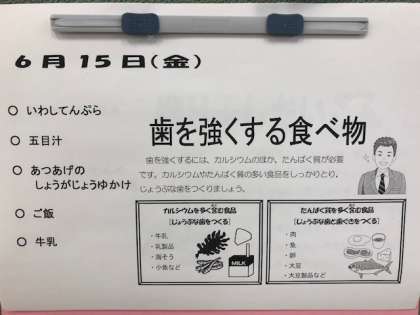 6月15日(金)
○ いわしてんぷら
○ 五目汁
○ あつあげの
しょうがじょうゆかけ
○ ご飯
○ 牛乳
歯を強くする食べ物
歯を強くするには、カルシウムのほか、たんぱく質が必要
です。カルシウムやたんぱく質の多い食品をしっかりとり、
じょうぶな歯をつくりましょう。
カルシウムを多く含む食品
[じょうぶな歯をつくる]
・牛乳
・乳製品
・海そう
・小魚など
MILK
たんぱく質を多く含む食品
[じょうぶな歯と歯ぐきをつくる]
・肉
・魚
・卵
・大豆
・大豆製品など